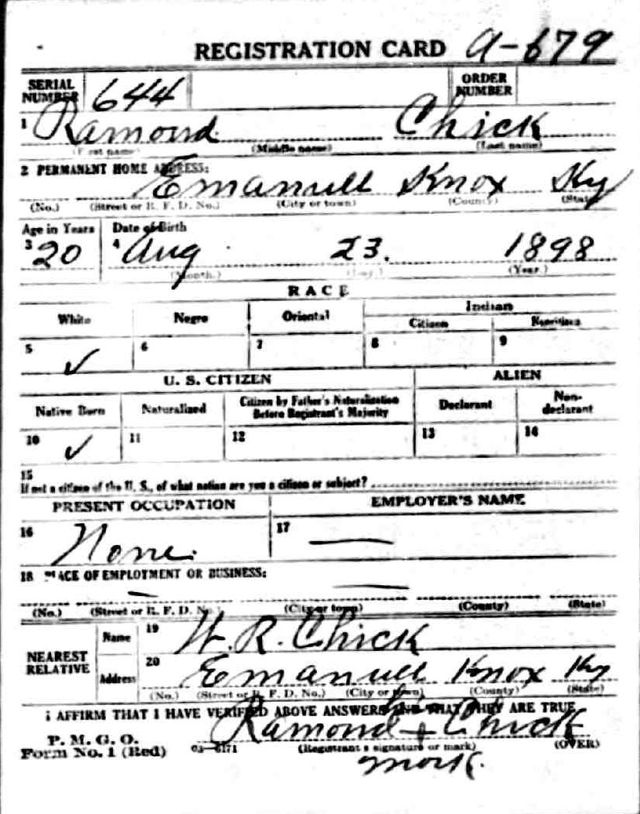 REGISTRATION CARD A-679
SERIAL NUMBER 644 ORDER NUMBER
1 Ramond Chick
(First name) (Middle name) (Last name)
2 PERMANENT HOME ADDRESS:
Emanuell Knox Ky
(No.) (Street or R. F. D. No.) (City or town) (County) (State)
Age in Years Date of Birth
3 20 4 Aug 23. 1898
(Month.) (Day.) (Year.)
RACE
White Negro Oriental Indian
Citizen Noncitizen
5 ✓ 6 7 8 9
U. S. CITIZEN ALIEN
Native Born Naturalized Citizen by Father's Naturalization Before Registrant's Majority Declarant Non-declarant
10 ✓ 11 12 13 14
15
If not a citizen of the U. S., of what nation are you a citizen or subject?
PRESENT OCCUPATION EMPLOYER'S NAME
16 None. 17 —
18 PLACE OF EMPLOYMENT OR BUSINESS:
— —
(No.) (Street or R. F. D. No.) (City or town) (County) (State)
NEAREST RELATIVE Name 19 W. R. Chick
Address 20 Emanuell Knox Ky
(No.) (Street or R. F. D. No.) (City or town) (County) (State)
I AFFIRM THAT I HAVE VERIFIED ABOVE ANSWERS AND THAT THEY ARE TRUE
P. M. G. O.
Form No. 1 (Red) 03—6171 Ramond + Chick
(Registrant's signature or mark) (OVER)
mark.